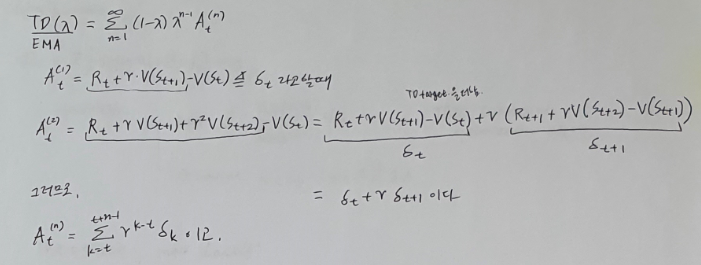 TD(λ) = Σ_{n=1}^{∞} (1-λ) λ^{n-1} A_t^{(n)}
EMA
A_t^{(1)} = R_t + γ·V(S_{t+1}) - V(S_t) ≜ δ_t 라고 할 때
TD target 을
A_t^{(2)} = R_t + γ V(S_{t+1}) + γ² V(S_{t+2}) - V(S_t) = R_t + γ V(S_{t+1}) - V(S_t) + γ (R_{t+1} + γ V(S_{t+2}) - V(S_{t+1}))
δ_t δ_{t+1}
그러므로, = δ_t + γ δ_{t+1} 이다
A_t^{(n)} = Σ_{k=t}^{t+n-1} γ^{k-t} δ_k 이고.